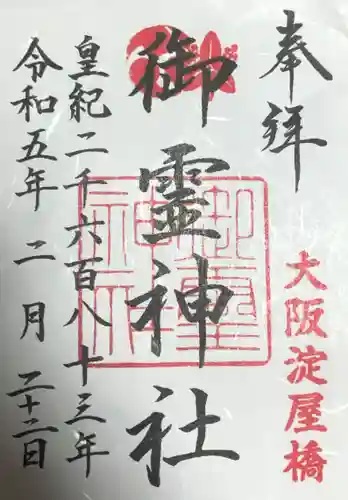 奉拝
大阪淀屋橋
御霊神社
皇紀二千六百八十三年
令和五年二月二十二日
御霊神社印